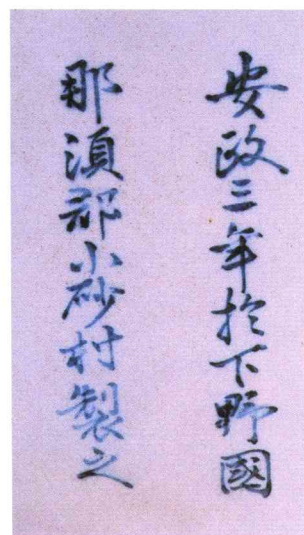 安政三年於下野國
那須郡小砂村製之